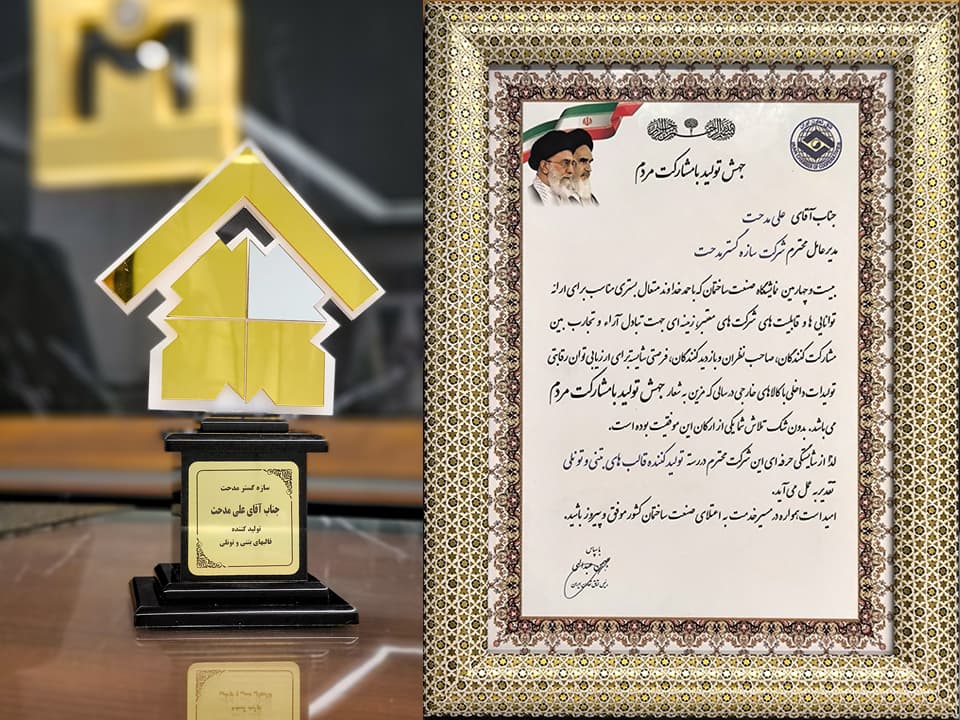 M
سازه گستر مدحت
جناب آقای علی مدحت
تولید کننده
قالبهای بتنی و تونلی
جهش تولید با مشارکت مردم
جناب آقای علی مدحت
مدیرعامل محترم شرکت سازه گستر مدحت
بیست و چهارمین نمایشگاه صنعت ساختمان که با حمد خداوند متعال بستری مناسب برای ارائه
توانایی ها و قابلیت های شرکت های معتبر، زمینه ای جهت تبادل آراء و تجارب بین
مشارکت کنندگان، صاحب نظران و بازدیدکنندگان، فرصتی شایسته برای ارزیابی توان رقابتی
تولیدات داخلی با کالاهای خارجی در سالی که مزین به شعار جهش تولید با مشارکت مردم
می باشد. بدون شک تلاش شما یکی از ارکان این موفقیت بوده است.
لذا از شایستگی حرفه ای این شرکت محترم در رسته تولید کننده قالب های بتنی و تونلی
تقدیر به عمل می آید.
امید است همواره در مسیر خدمت به اعتلای صنعت ساختمان کشور موفق و پیروز باشید.
با سپاس
رئیس اتاق تعاون ایران